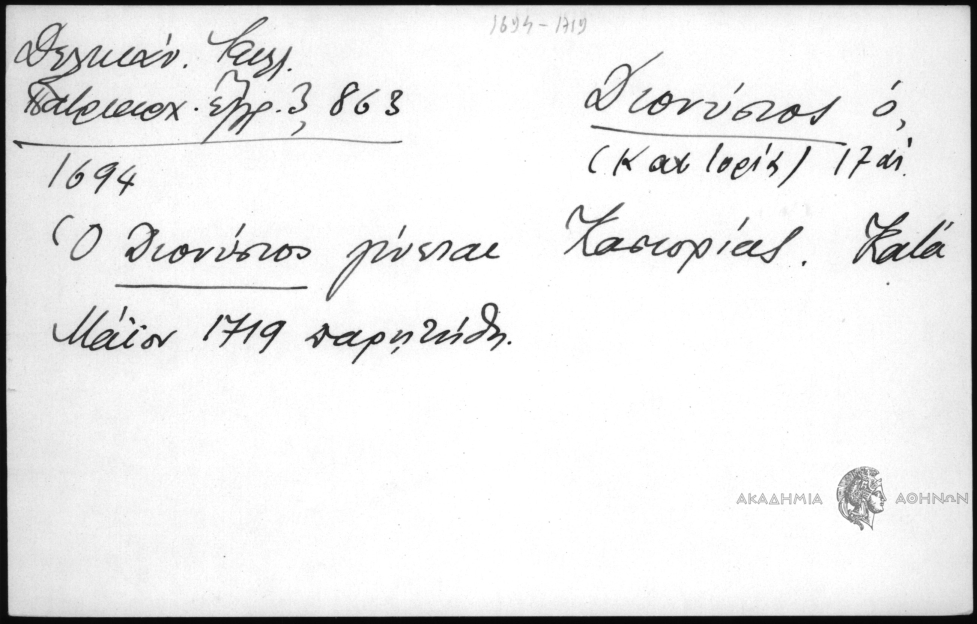 1694-1719
Δελικάν. Καλλ.
Πατριαρχ. ἔγγρ. 3, 863
Διονύσιος ὁ,
(Καστορίας) 17 αἰ.
1694
Ὁ Διονύσιος γίνεται Καστορίας. Κατά
Μάϊον 1719 παρητήθη.
ΑΚΑΔΗΜΙΑ ΑΘΗΝΩΝ